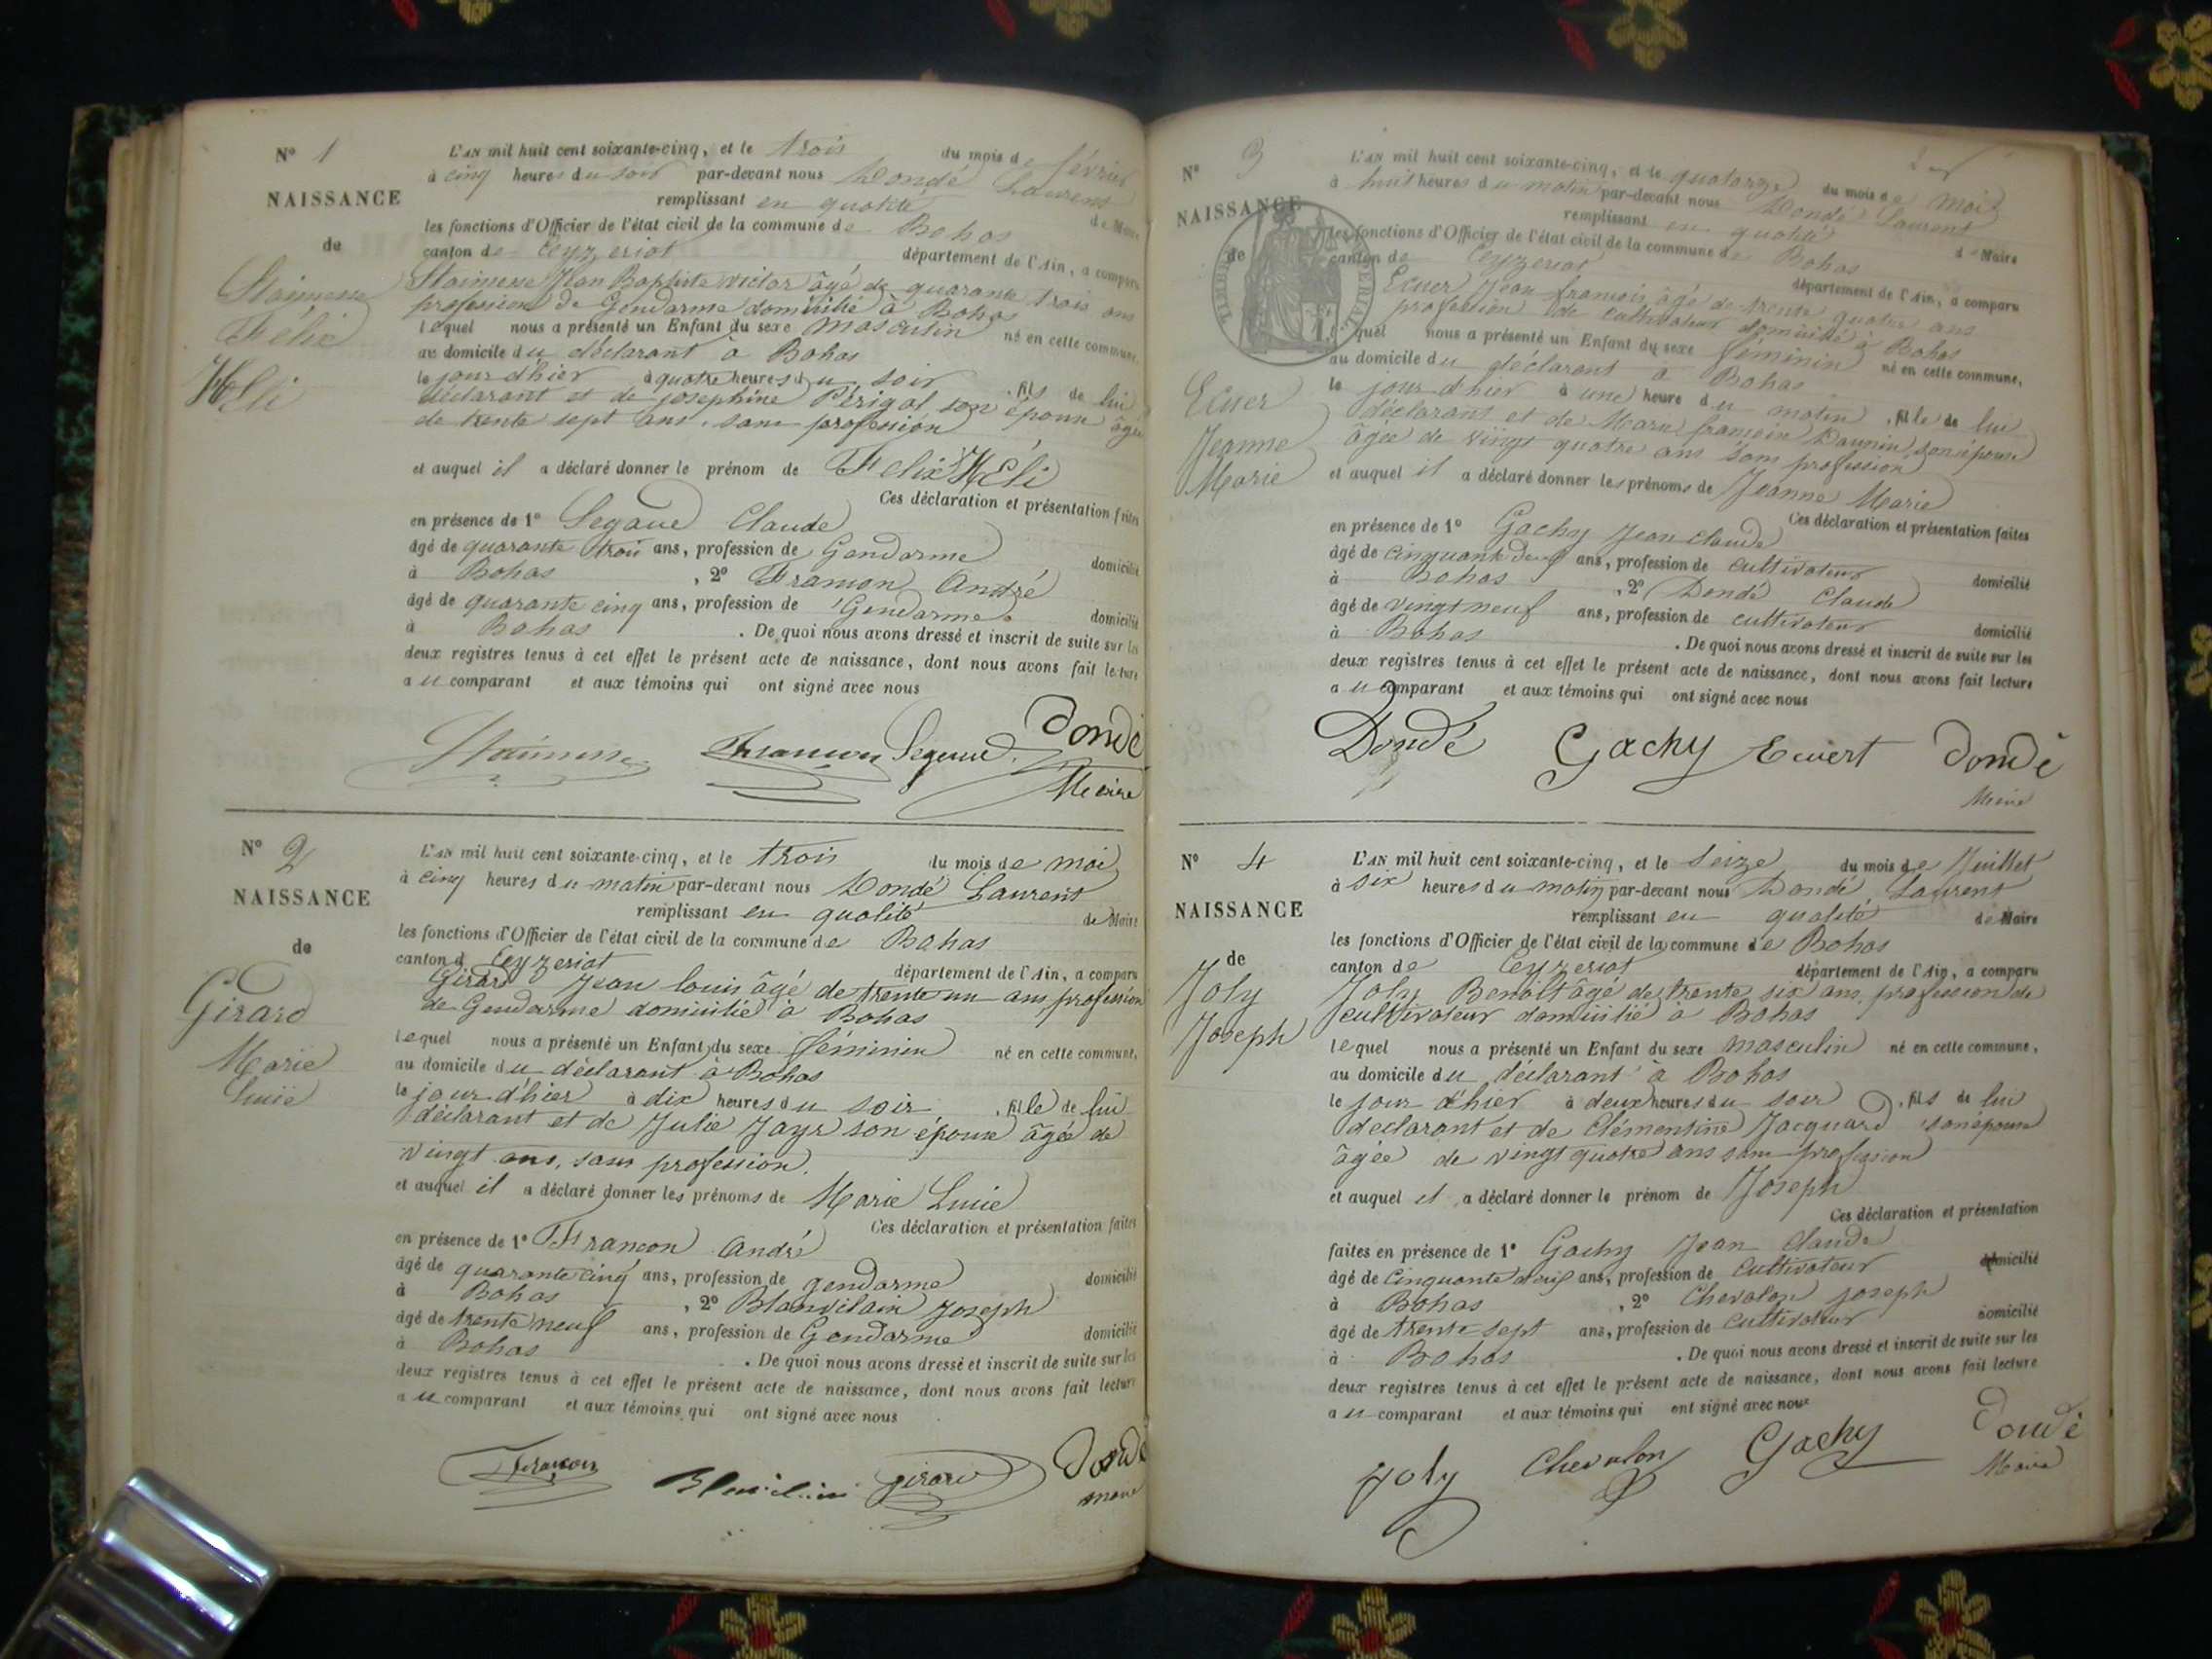 N° 1
NAISSANCE
de
Félix
Héli
L'AN mil huit cent soixante-cinq, et le trois du mois de février
à cinq heures du soir par-devant nous Dondé Laurent
remplissant en qualité de Maire
les fonctions d'Officier de l'état civil de la commune de Bohas
canton de Ceyzeriat département de l'Ain, a comparu
Jean Baptiste Victor âgé de quarante trois ans
profession de Gendarme domicilié à Bohas
lequel nous a présenté un Enfant du sexe masculin né en cette commune,
au domicile du déclarant à Bohas
le jour d'hier à quatre heures du soir , fils de lui
déclarant et de joséphine Périgal son épouse âgée
de trente sept ans, sans profession
et auquel il a déclaré donner le prénom de Félix Héli
Ces déclaration et présentation faites
en présence de 1° Segaud Claude
âgé de quarante trois ans, profession de Gendarme domicilié
à Bohas , 2° Francon André
âgé de quarante cinq ans, profession de Gendarme domicilié
à Bohas . De quoi nous avons dressé et inscrit de suite sur les
deux registres tenus à cet effet le présent acte de naissance, dont nous avons fait lecture
au comparant et aux témoins qui ont signé avec nous
Francon Segaud Dondé
Maire
N° 2
NAISSANCE
de
Girard
Marie
Lucie
L'AN mil huit cent soixante-cinq, et le trois du mois de mai
à cinq heures du matin par-devant nous Dondé Laurent
remplissant en qualité de Maire
les fonctions d'Officier de l'état civil de la commune de Bohas
canton d Ceyzeriat département de l'Ain, a comparu
Girard Jean louis âgé de trente un ans, profession
de Gendarme domicilié à Bohas
lequel nous a présenté un Enfant du sexe féminin né en cette commune,
au domicile du déclarant à Bohas
le jour d'hier à dix heures du soir , fille de lui
déclarant et de Julie Jayr son épouse âgée de
vingt ans, sans profession.
et auquel il a déclaré donner les prénoms de Marie Lucie
Ces déclaration et présentation faites
en présence de 1° Francon André
âgé de quarante cinq ans, profession de gendarme domicilié
à Bohas , 2° Blanvilain Joseph
âgé de trente neuf ans, profession de Gendarme domicilié
à Bohas . De quoi nous avons dressé et inscrit de suite sur les
deux registres tenus à cet effet le présent acte de naissance, dont nous avons fait lecture
au comparant et aux témoins qui ont signé avec nous
Francon Blanvilain girard Dondé
maire
N° 3
NAISSANCE
de
Ecuer
Jeanne
Marie
TIMBRE IMPERIAL
L'AN mil huit cent soixante-cinq, et le quatorze du mois de mai
à huit heures du matin par-devant nous Dondé Laurent
remplissant en qualité de Maire
les fonctions d'Officier de l'état civil de la commune de Bohas
canton de Ceyzeriat département de l'Ain, a comparu
Ecuer Jean françois âgé de trente quatre ans
profession de cultivateur domicilié à Bohas
lequel nous a présenté un Enfant du sexe féminin né en cette commune,
au domicile du déclarant à Bohas
le jour d'hier à une heure du matin , fille de lui
déclarant et de Marie son épouse
âgée de vingt quatre ans sans profession
et auquel il a déclaré donner les prénoms de Jeanne Marie
Ces déclaration et présentation faites
en présence de 1° Gachy Jean Claude
âgé de cinquante deux ans, profession de cultivateur domicilié
à Bohas , 2° Dondé Claude
âgé de vingt neuf ans, profession de cultivateur domicilié
à Bohas . De quoi nous avons dressé et inscrit de suite sur les
deux registres tenus à cet effet le présent acte de naissance, dont nous avons fait lecture
au comparant et aux témoins qui ont signé avec nous
Dondé Gachy Ecuert Dondé
Maire
N° 4
NAISSANCE
de
Joly
Joseph
L'AN mil huit cent soixante-cinq, et le seize du mois de Juillet
à six heures du matin par-devant nous Dondé Laurent
remplissant en qualité de Maire
les fonctions d'Officier de l'état civil de la commune de Bohas
canton de Ceyzeriat département de l'Ain, a comparu
Joly Benoît âgé de trente six ans, profession de
cultivateur domicilié à Bohas
lequel nous a présenté un Enfant du sexe masculin né en cette commune,
au domicile du déclarant à Bohas
le jour d'hier à deux heures du soir , fils de lui
déclarant et de Clémentine Jacquard son épouse
âgée de vingt quatre ans sans profession
et auquel il a déclaré donner le prénom de Joseph
Ces déclaration et présentation
faites en présence de 1° Gachy Jean Claude
âgé de cinquante deux ans, profession de cultivateur domicilié
à Bohas , 2° Chevalon joseph
âgé de trente sept ans, profession de cultivateur domicilié
à Bohas . De quoi nous avons dressé et inscrit de suite sur les
deux registres tenus à cet effet le présent acte de naissance, dont nous avons fait lecture
au comparant et aux témoins qui ont signé avec nous
Joly Chevalon Gachy Dondé
Maire